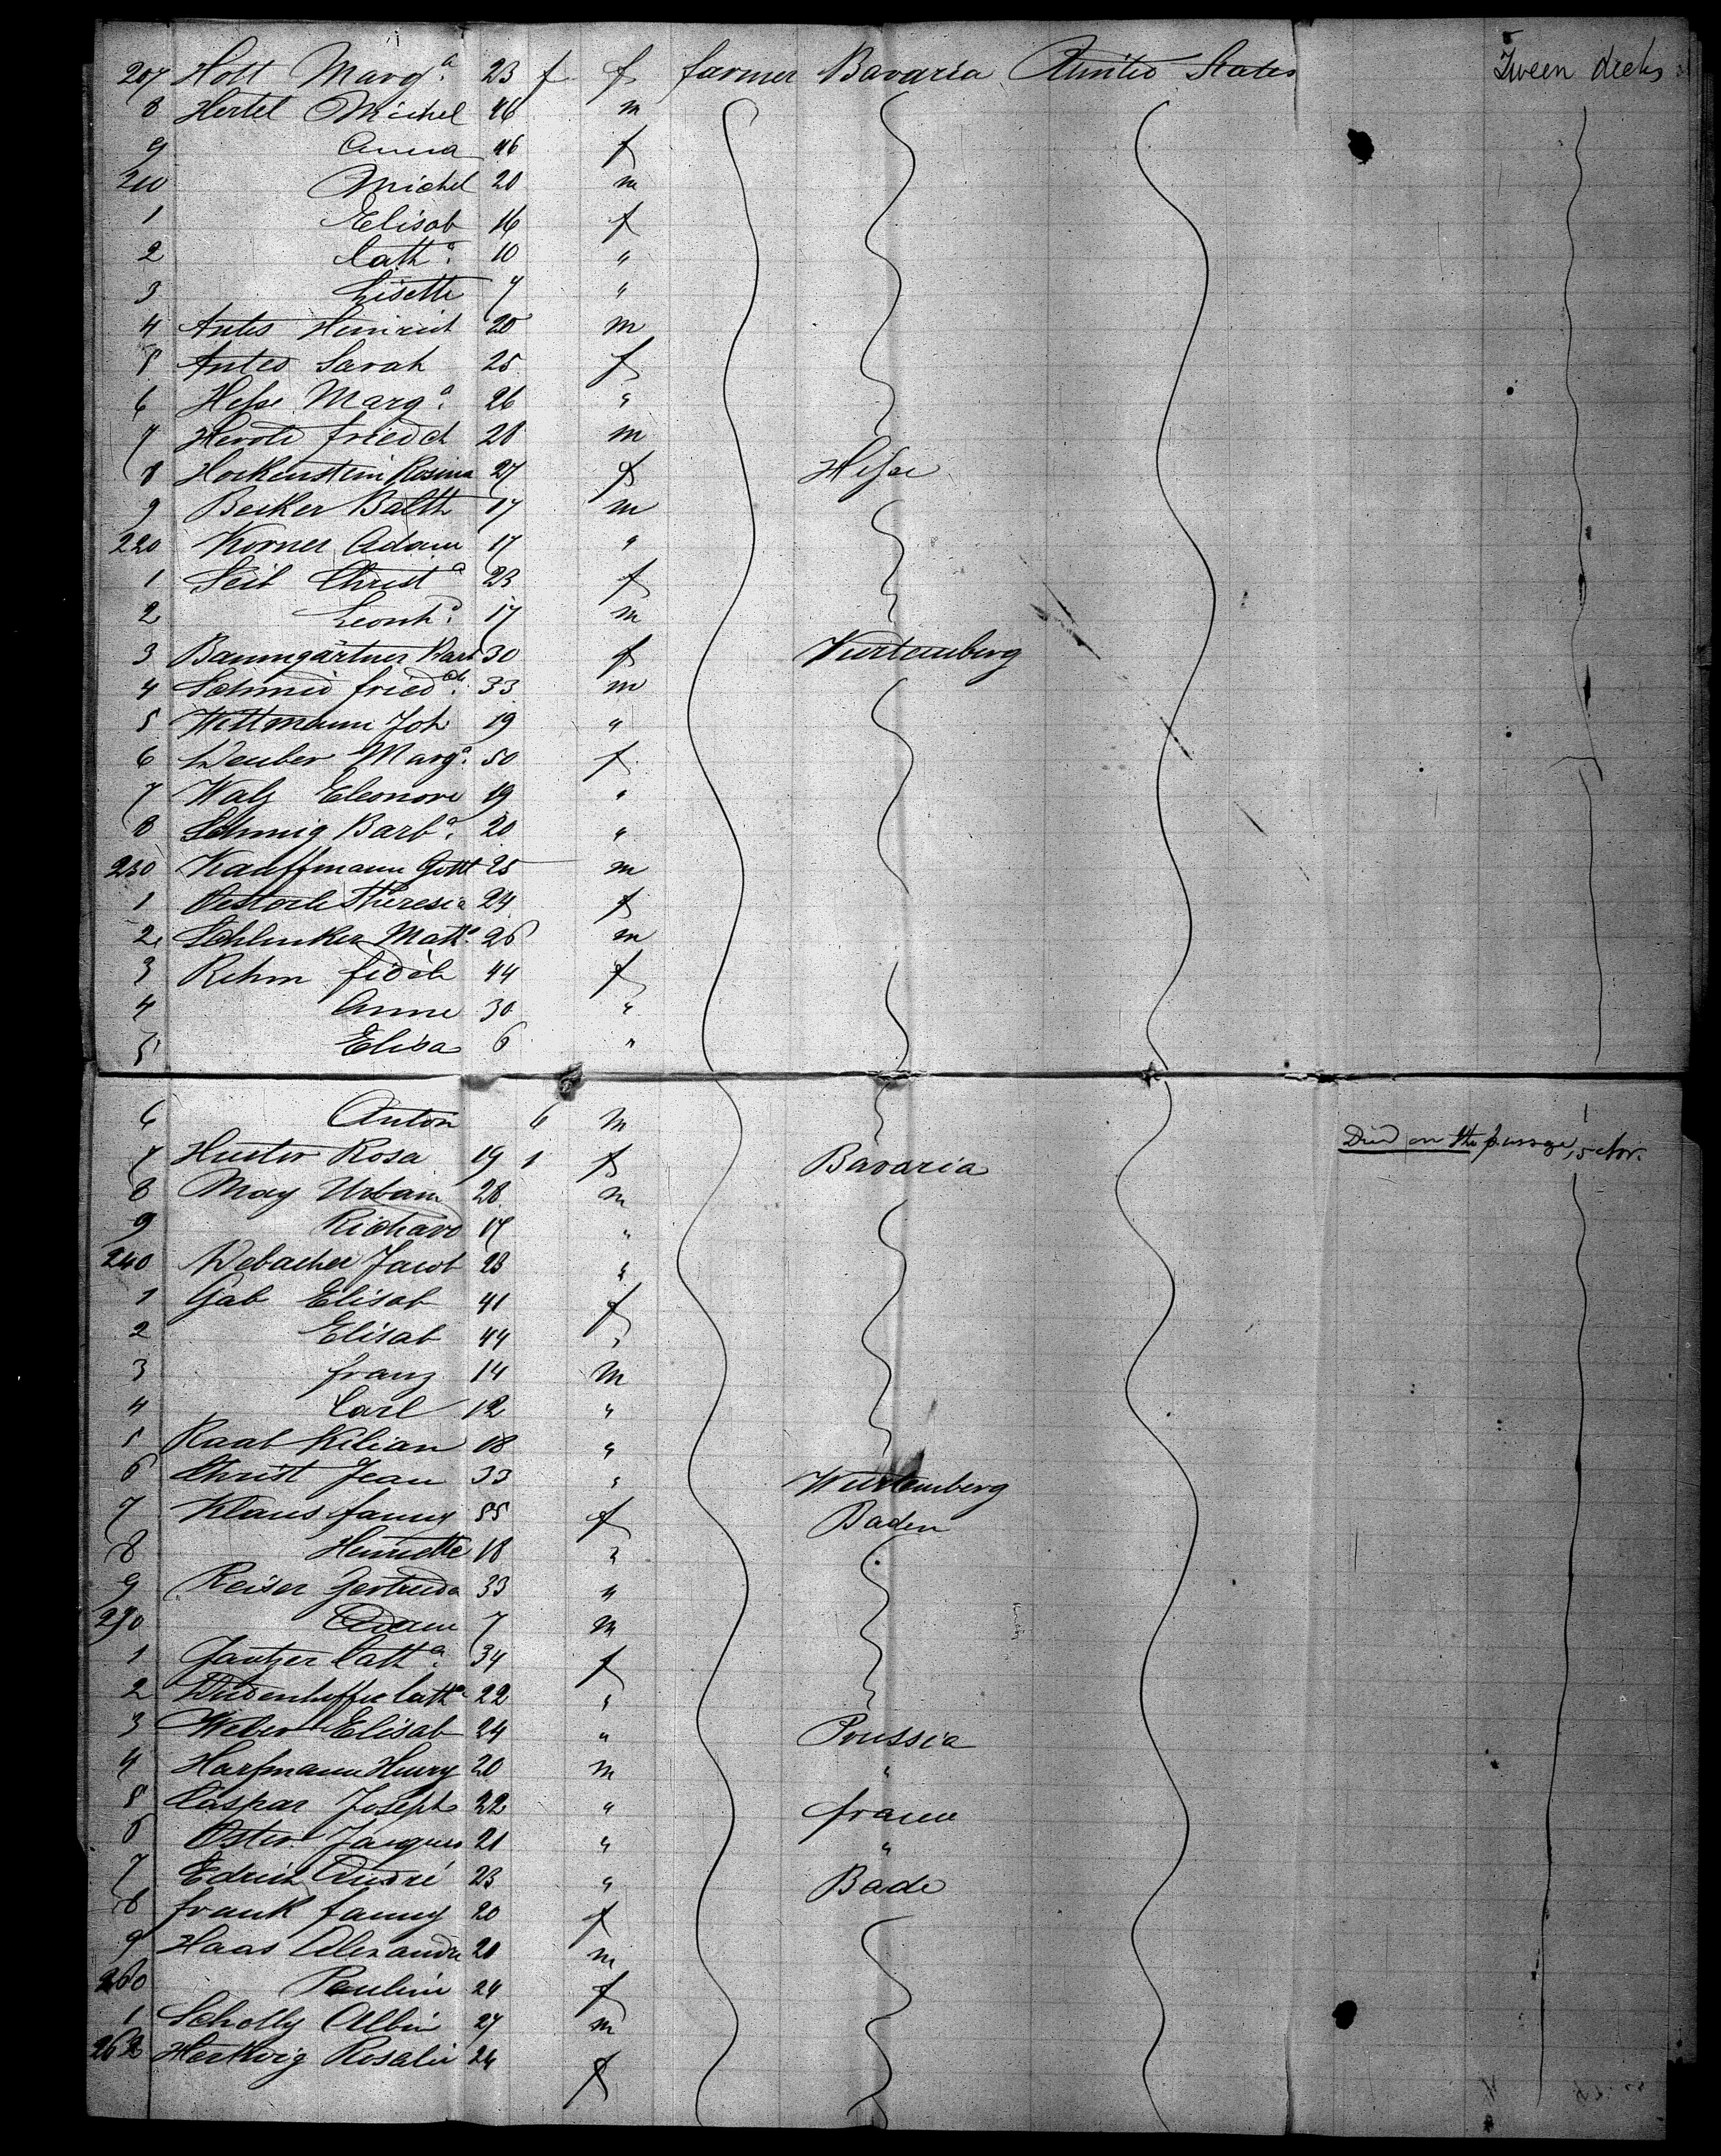 207 Holl Marg.a 23 f f farmer Bavaria United States Tween decks
8 Hertel Michel 46 m
9 Anna 46 f
210 Michel 20 m
1 Elisab 16 f
2 Cath.a 10 "
3 Lisette 7 "
4 Antes Heinrich 20 m
5 Antes Sarah 25 f
6 Hesse Marg.a 26 "
7 Herold Friedch 28 m
8 Hockenstein Rosina 27 f Hesse
9 Becker Balth 17 m
220 Korner Adam 17 "
1 Seib Christ.a 23 f
2 Leonh.d 17 m
3 Baumgärtner Barb 30 f Wurtemberg
4 Schmid Fried.ch 33 m
5 Wittmann Joh 19 "
6 Weuber Marg.a 50 f
7 Walz Eleonore 19 "
8 Schmig Barb.a 20 "
230 Kauffmann Gottl 25 m
1 Theresia 24 f
2 Schlenker Math. 26 m
3 Rehm Fidele 44 f
4 Anne 30 "
5 Elisa 6 "
6 Anton 6 m Died on the passage, 5 Nov.
7 Huster Rosa 19 1 f Bavaria
8 May Urbain 28 m
9 Richard 17 "
240 Webacher Jacob 23 "
1 Gab Elisab 41 f
2 Elisab 44 "
3 Franz 14 m
4 Carl 12 "
5 Raab Kilian 18 "
6 Christ Jean 33 " Wurtemberg
7 Klaus Fanny 55 f Baden
8 Henriette 18 "
9 Reiser Gertruda 33 "
250 Adam 7 m
1 Jautzer Cath.a 34 f
2 Dudenhoffer Cath.a 22 "
3 Weber Elisab 24 " Prussia
4 Harfmann Henry 20 m "
5 Caspar Joseph 22 " France
6 Oster Jacques 21 " "
7 Edrich André 23 " Bade
8 Frank Fanny 20 f
9 Haas Alexandre 20 m
260 Pauline 24 f
1 Scholly Albin 27 m
262 Hertwig Rosalie 24 f